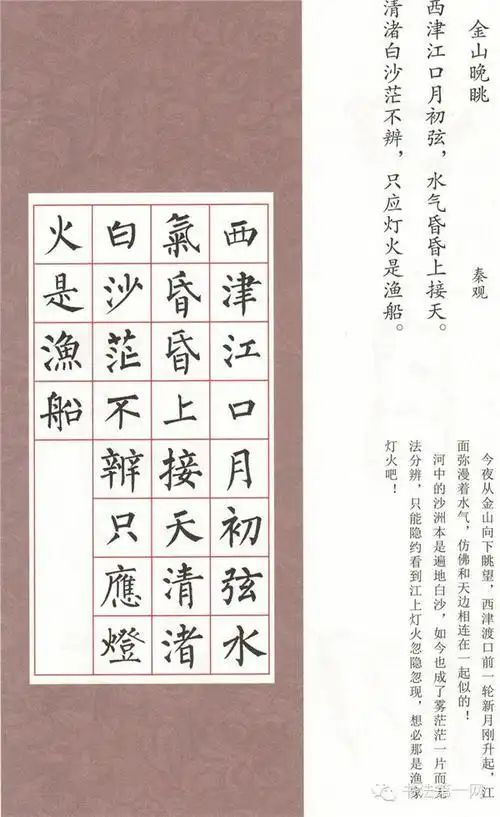 金山晚眺
秦观
西津江口月初弦，水气昏昏上接天。
清渚白沙茫不辨，只应灯火是渔船。
今夜从金山向下眺望，西津渡口前一轮新月刚升起，江
面弥漫着水气，仿佛和天边相连在一起似的！
河中的沙洲本是遍地白沙，如今也成了雾茫茫一片而无
法分辨，只能隐约看到江上灯火忽隐忽现，想必那是渔家
灯火吧！
西津江口月初弦水
氣昏昏上接天清渚
白沙茫不辨只應燈
火是漁船
书法第一网